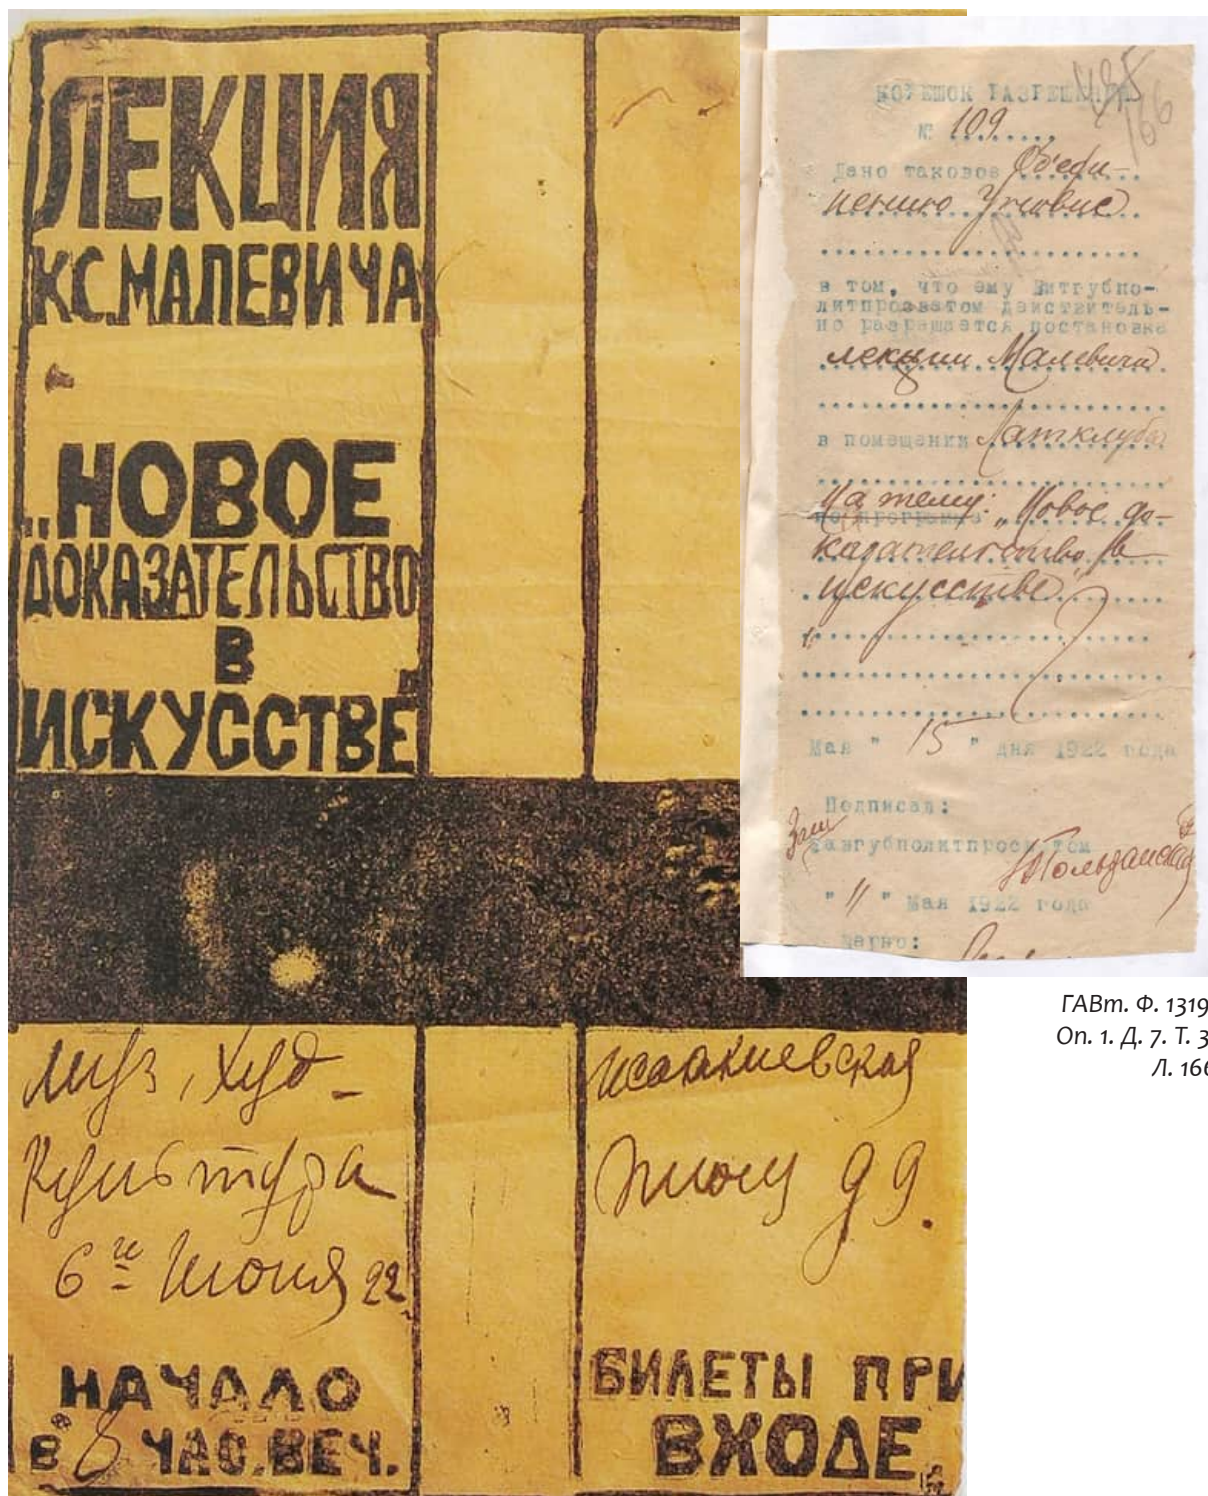 ЛЕКЦИЯ
КС. МАЛЕВИЧА
„НОВОЕ
ДОКАЗАТЕЛЬСТВО
В
ИСКУССТВЕ"
Муз. Худ-
Культура
6го Июня 22
НАЧАЛО
В 8 ЧАС. ВЕЧ.
Исаакиевская
площ д 9.
БИЛЕТЫ ПРИ
ВХОДЕ.
КОРЕШОК РАЗРЕШЕНИЯ
166
№ 109
Дано таковое Об'еди-
нению Уновис
в том, что ему Витгубпо-
литпросветом действитель-
но разрешается постановка
лекции Малевича
в помещении Латклуба
На тему: „Новое до-
по программе
казательство в
искусстве"
Мая " 15 " дня 1922 года
Подписал:
Зам
Завгубполитпросветом
" 11 " Мая 1922 года
Верно:
ГАВт. Ф. 1319
Оп. 1. Д. 7. Т. 3
Л. 166